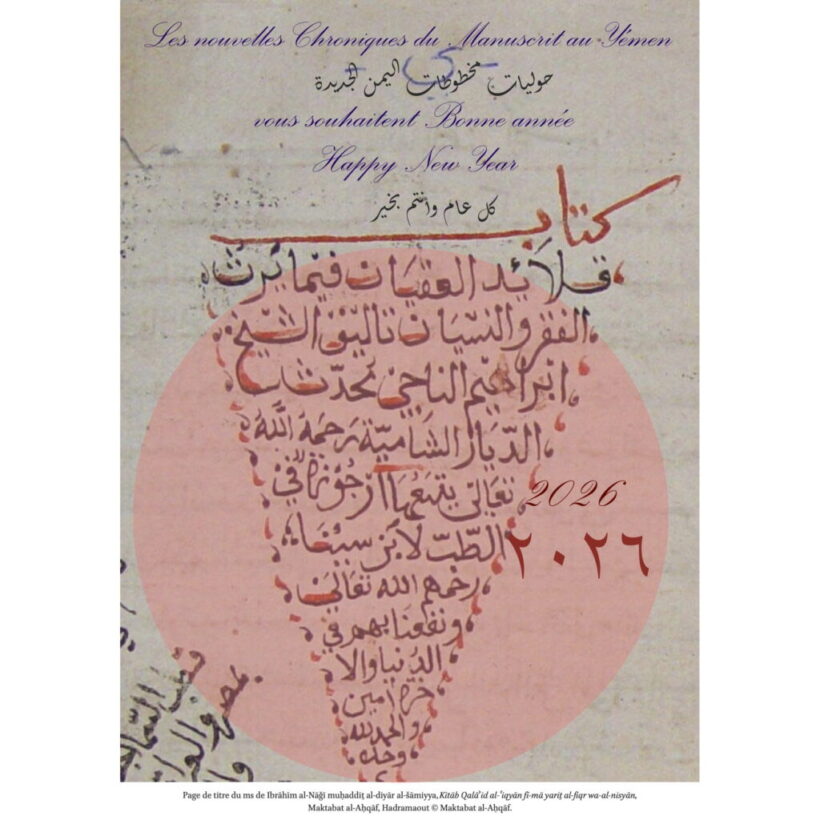 Les nouvelles Chroniques du Manuscrit au Yémen
حوليات مخطوطات اليمن الجديدة
vous souhaitent Bonne année
Happy New Year
كل عام وانتم بخير
كتاب
قلائد العقيان فيما يرث
الفقر والنسيان تاليف الشيخ
ابراهيم الناجي محدث
الديار الشامية رحمه الله
تعالى يتبعها ارجوزة في
2026
الطب لابن سينا
٢٠٢٦
رحمهم الله تعالى
ونفعنا بهم في
الدنيا والا
خرة امين
والحمد لله
وحده
Page de titre du ms de Ibrāhīm al-Nāǧī muḥaddiṯ al-diyār al-šāmiyya, Kitāb Qalāʾid al-ʿiqyān fī-mā yariṯ al-fiqr wa-al-nisyān,
Maktabat al-Aḥqāf, Hadramaout © Maktabat al-Aḥqāf.